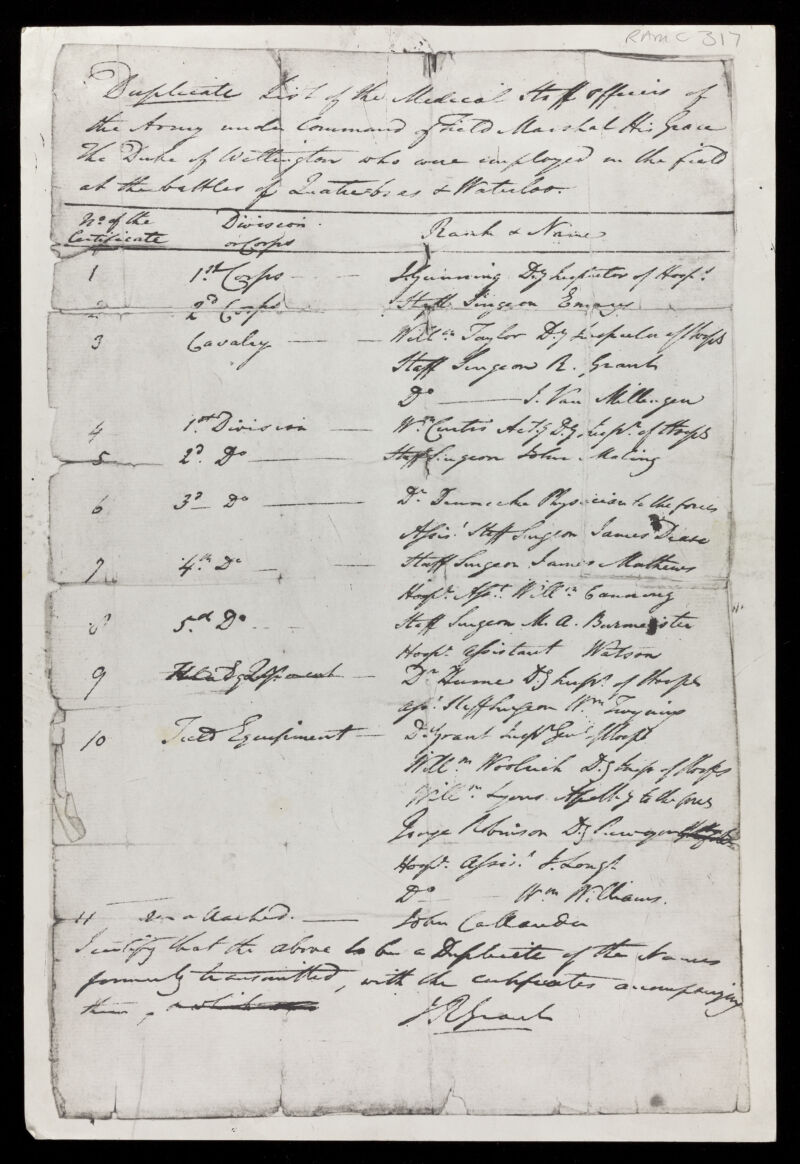 RAMC 317
Duplicate List of the Medical Staff officers of
the Army under Command of Field Marshal His Grace
The Duke of Wellington who were employed in the field
at the battles of Quatre-bras & Waterloo.
No. of the Certificate Division or Corps Rank & Name
1 1st Corps J. Gunning Dy Inspector of Hospls
2 2d Corps Staff Surgeon Emery
3 Cavalry Willm Taylor Dy Inspector of Hosps
Staff Surgeon R. Grant
Do J. Van Millingen
4 1st Division Wm Curtis Actg Dy Inspr of Hosps
5 2d Do Staff Surgeon John Maling
6 3d Do Dr Denneche Physician to the forces
Assist Staff Surgeon James Dease
7 4th Do Staff Surgeon James Mathews
Hospl Asst Willm Canning
8 5d Do Staff Surgeon M. A. Burmeister
Hospl assistant Watson
9 Dr Hume Dy Inspr of Hospls
Asst Staff Surgeon Wm Twyning
10 Field Equipment Dr Grant Inspr Genl of Hosps
Willm Woolrich Dy Inspr of Hosps
Willm Lyons Apothy to the forces
George Robinson Dy Purveyor
Hospl Assist J. Long
Do Wm Williams.
11 un attached. John Callander
I certify that the above to be a Duplicate of the Names
formerly transmitted, with the certificates accompanying
them,
J R Grant